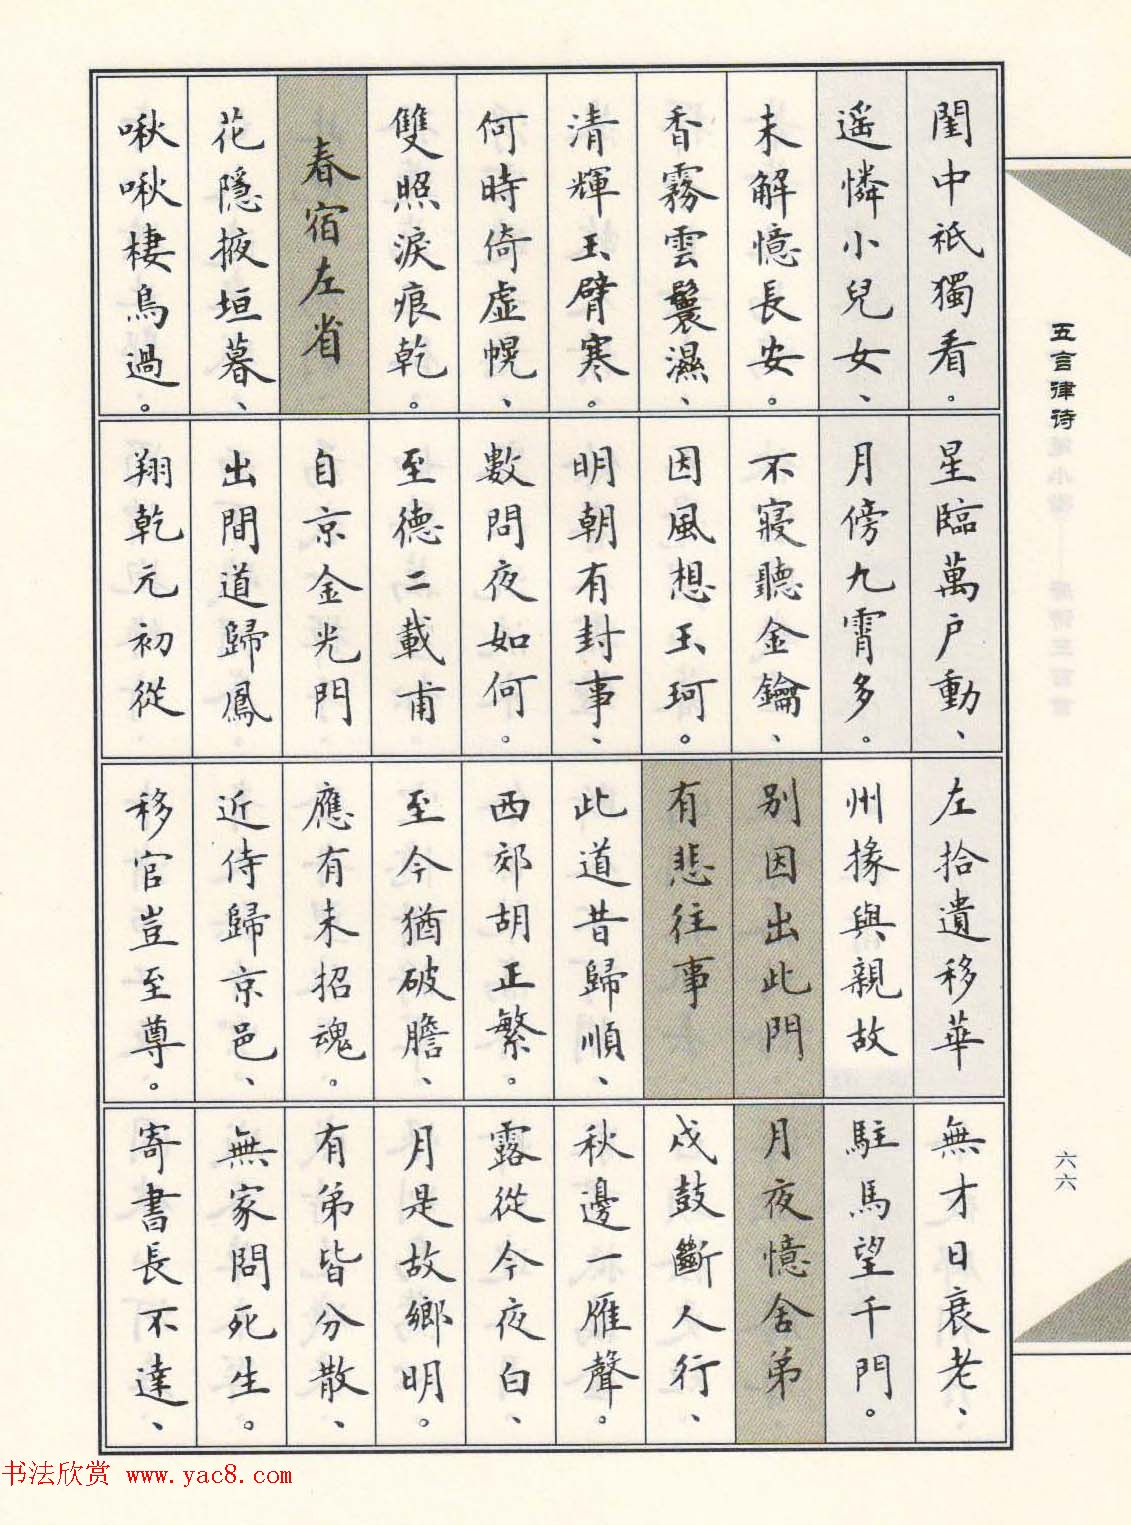 五言律诗
閨中祇獨看。
遥憐小兒女、
未解憶長安。
香霧雲鬟濕、
清輝玉臂寒。
何時倚虛幌、
雙照淚痕乾。
春宿左省
花隱掖垣暮、
啾啾棲鳥過。
星臨萬户動、
月傍九霄多。
不寢聽金鑰、
因風想玉珂。
明朝有封事、
數問夜如何。
至德二載甫
自京金光門
出間道歸鳳
翔乾元初從
左拾遺移華
州掾與親故
别因出此門
有悲往事
此道昔歸順、
西郊胡正繁。
至今猶破膽、
應有未招魂。
近侍歸京邑、
移官豈至尊。
無才日衰老、
駐馬望千門。
月夜憶舍弟
戍鼓斷人行、
秋邊一雁聲。
露從今夜白、
月是故鄉明。
有弟皆分散、
無家問死生。
寄書長不達、
六六
书法欣赏 www.yac8.com